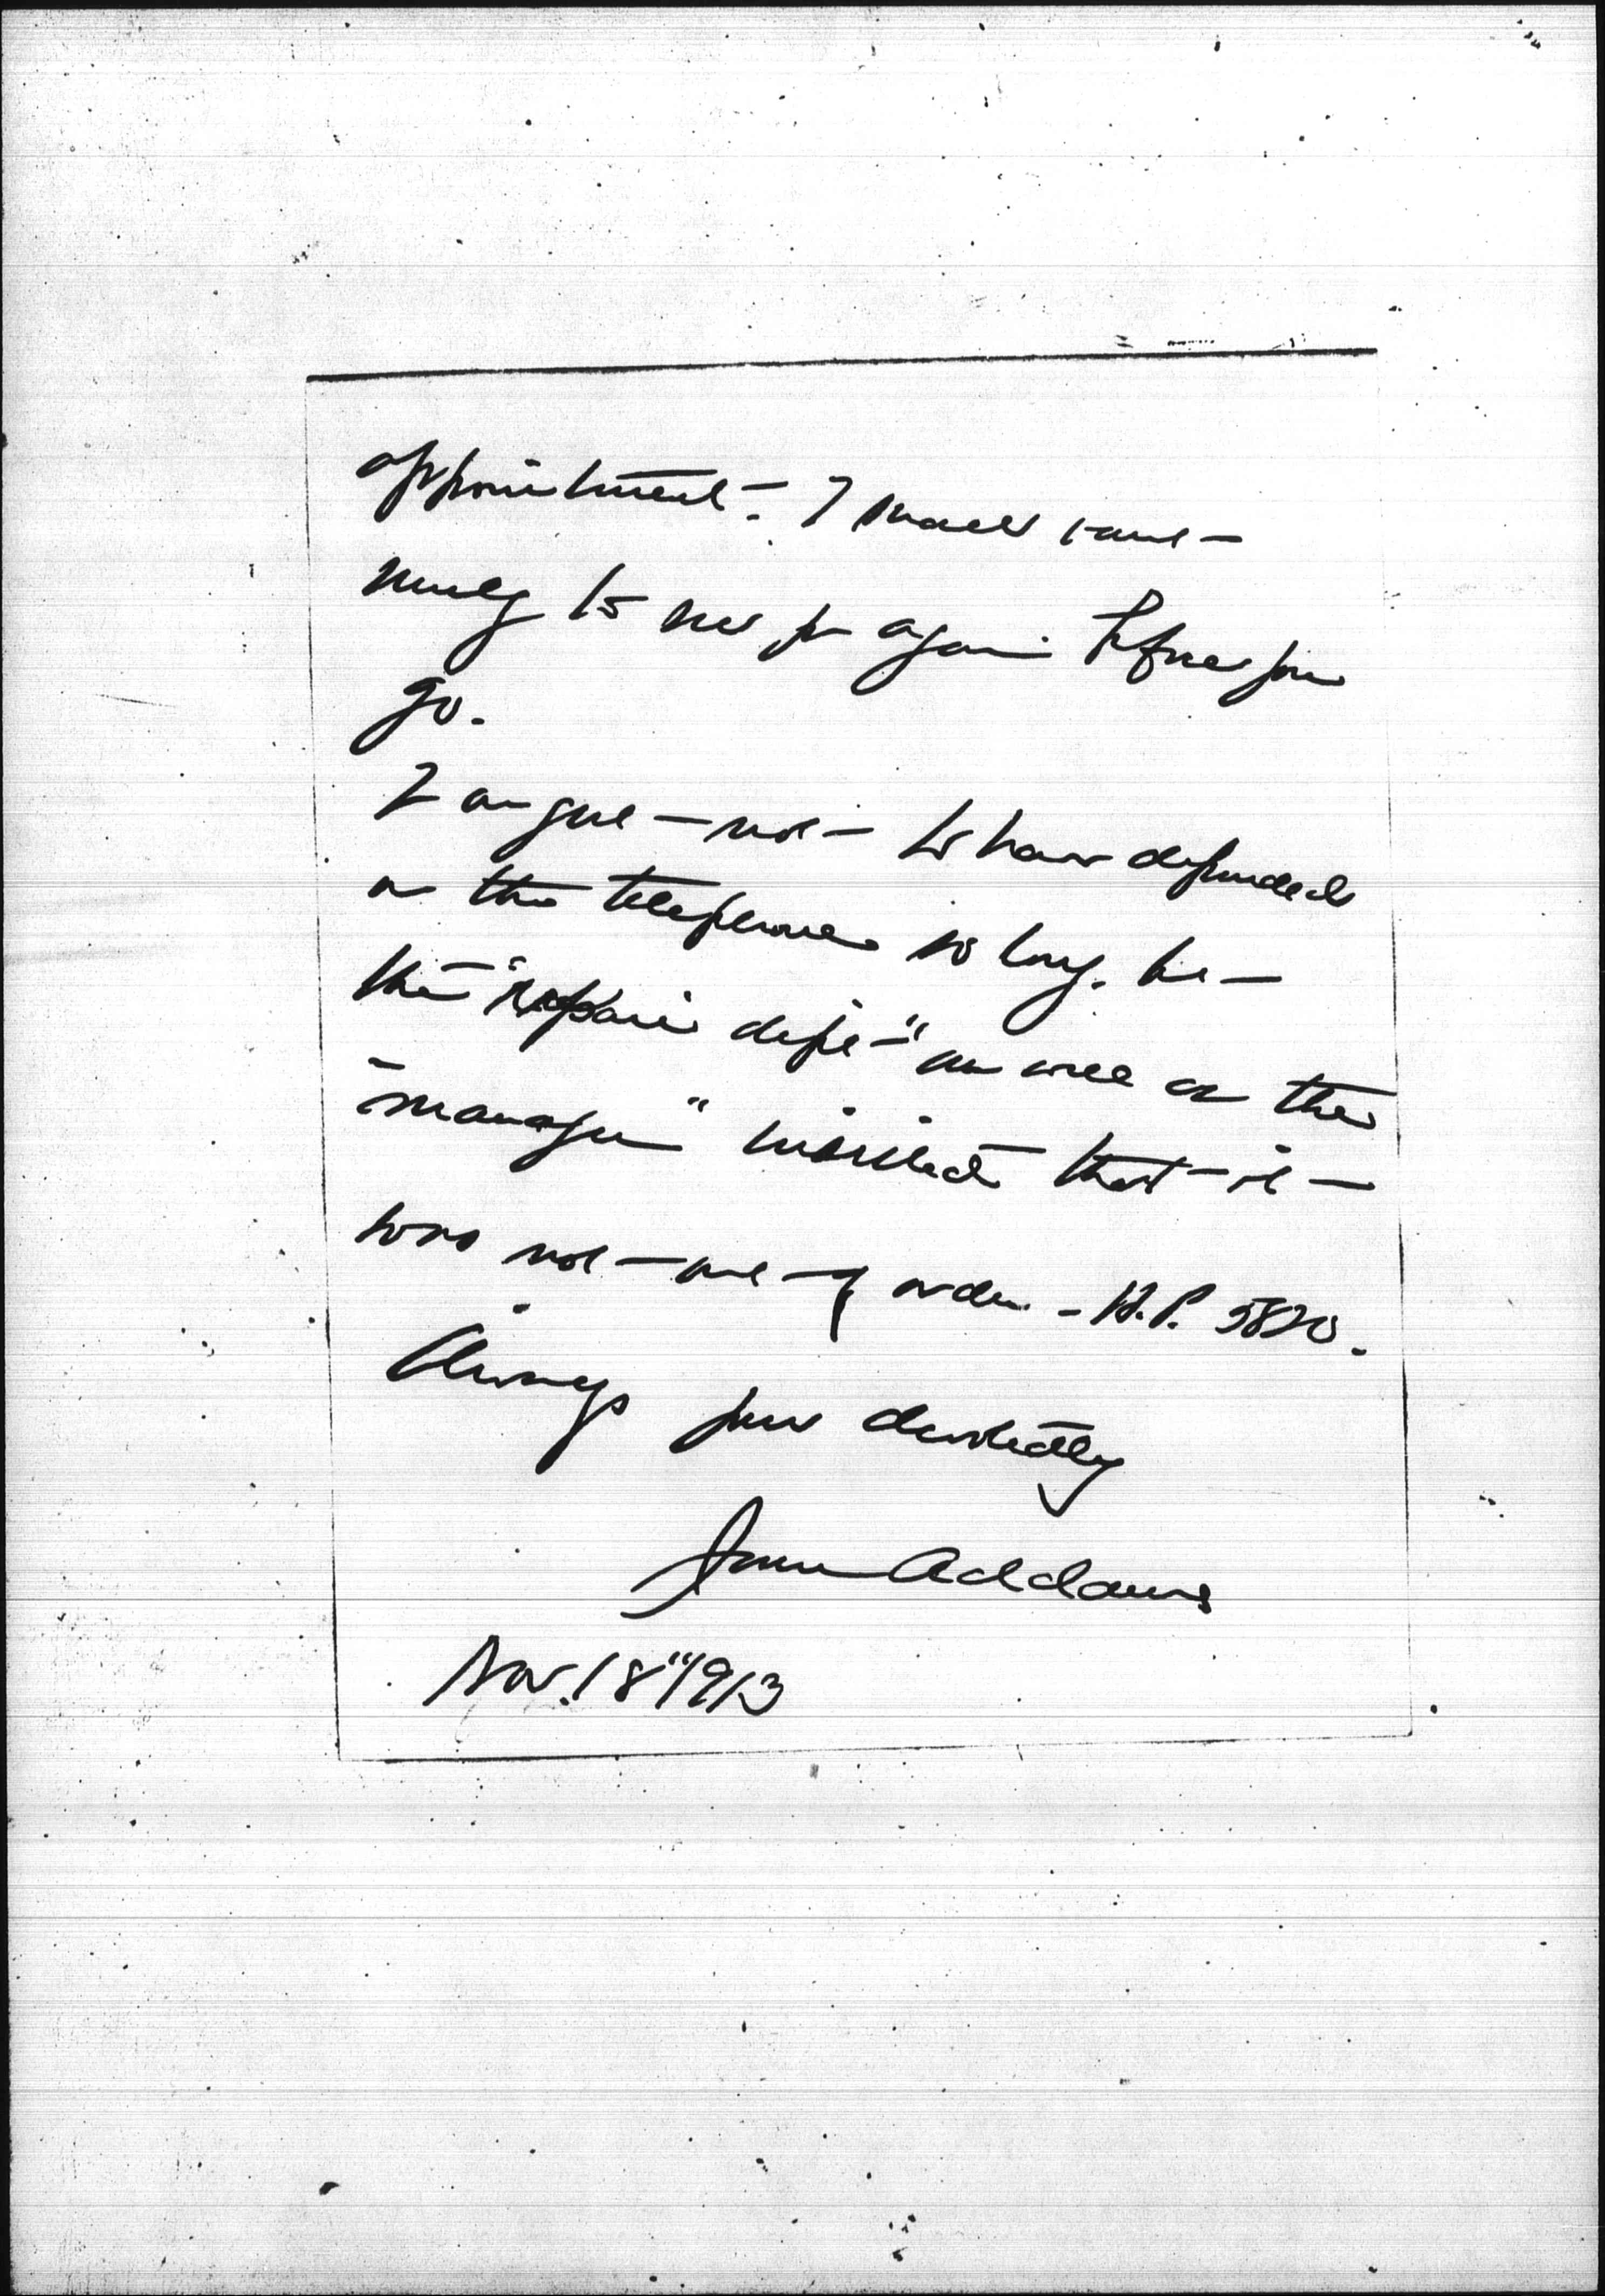 appointment. I shall want
to see you again before you
go.
I ought not to have depended
on the telephone so long. but
the "repair dept" as well as the
"manager" insisted that it
was not out of order - H.P. 5820.
Always yours devotedly
Jane Addams
Nov. 18" 1913